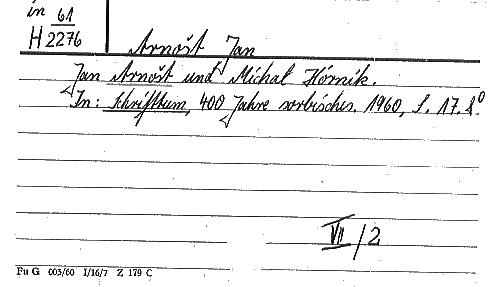 in 61
H 2276
Arnošt Jan
Jan Arnošt und Michal Hórnik.
In: Schrifttum, 400 Jahre sorbisches. 1960, S. 17. 8°
VII/2
Fu G 003/60 I/16/7 Z 179 C